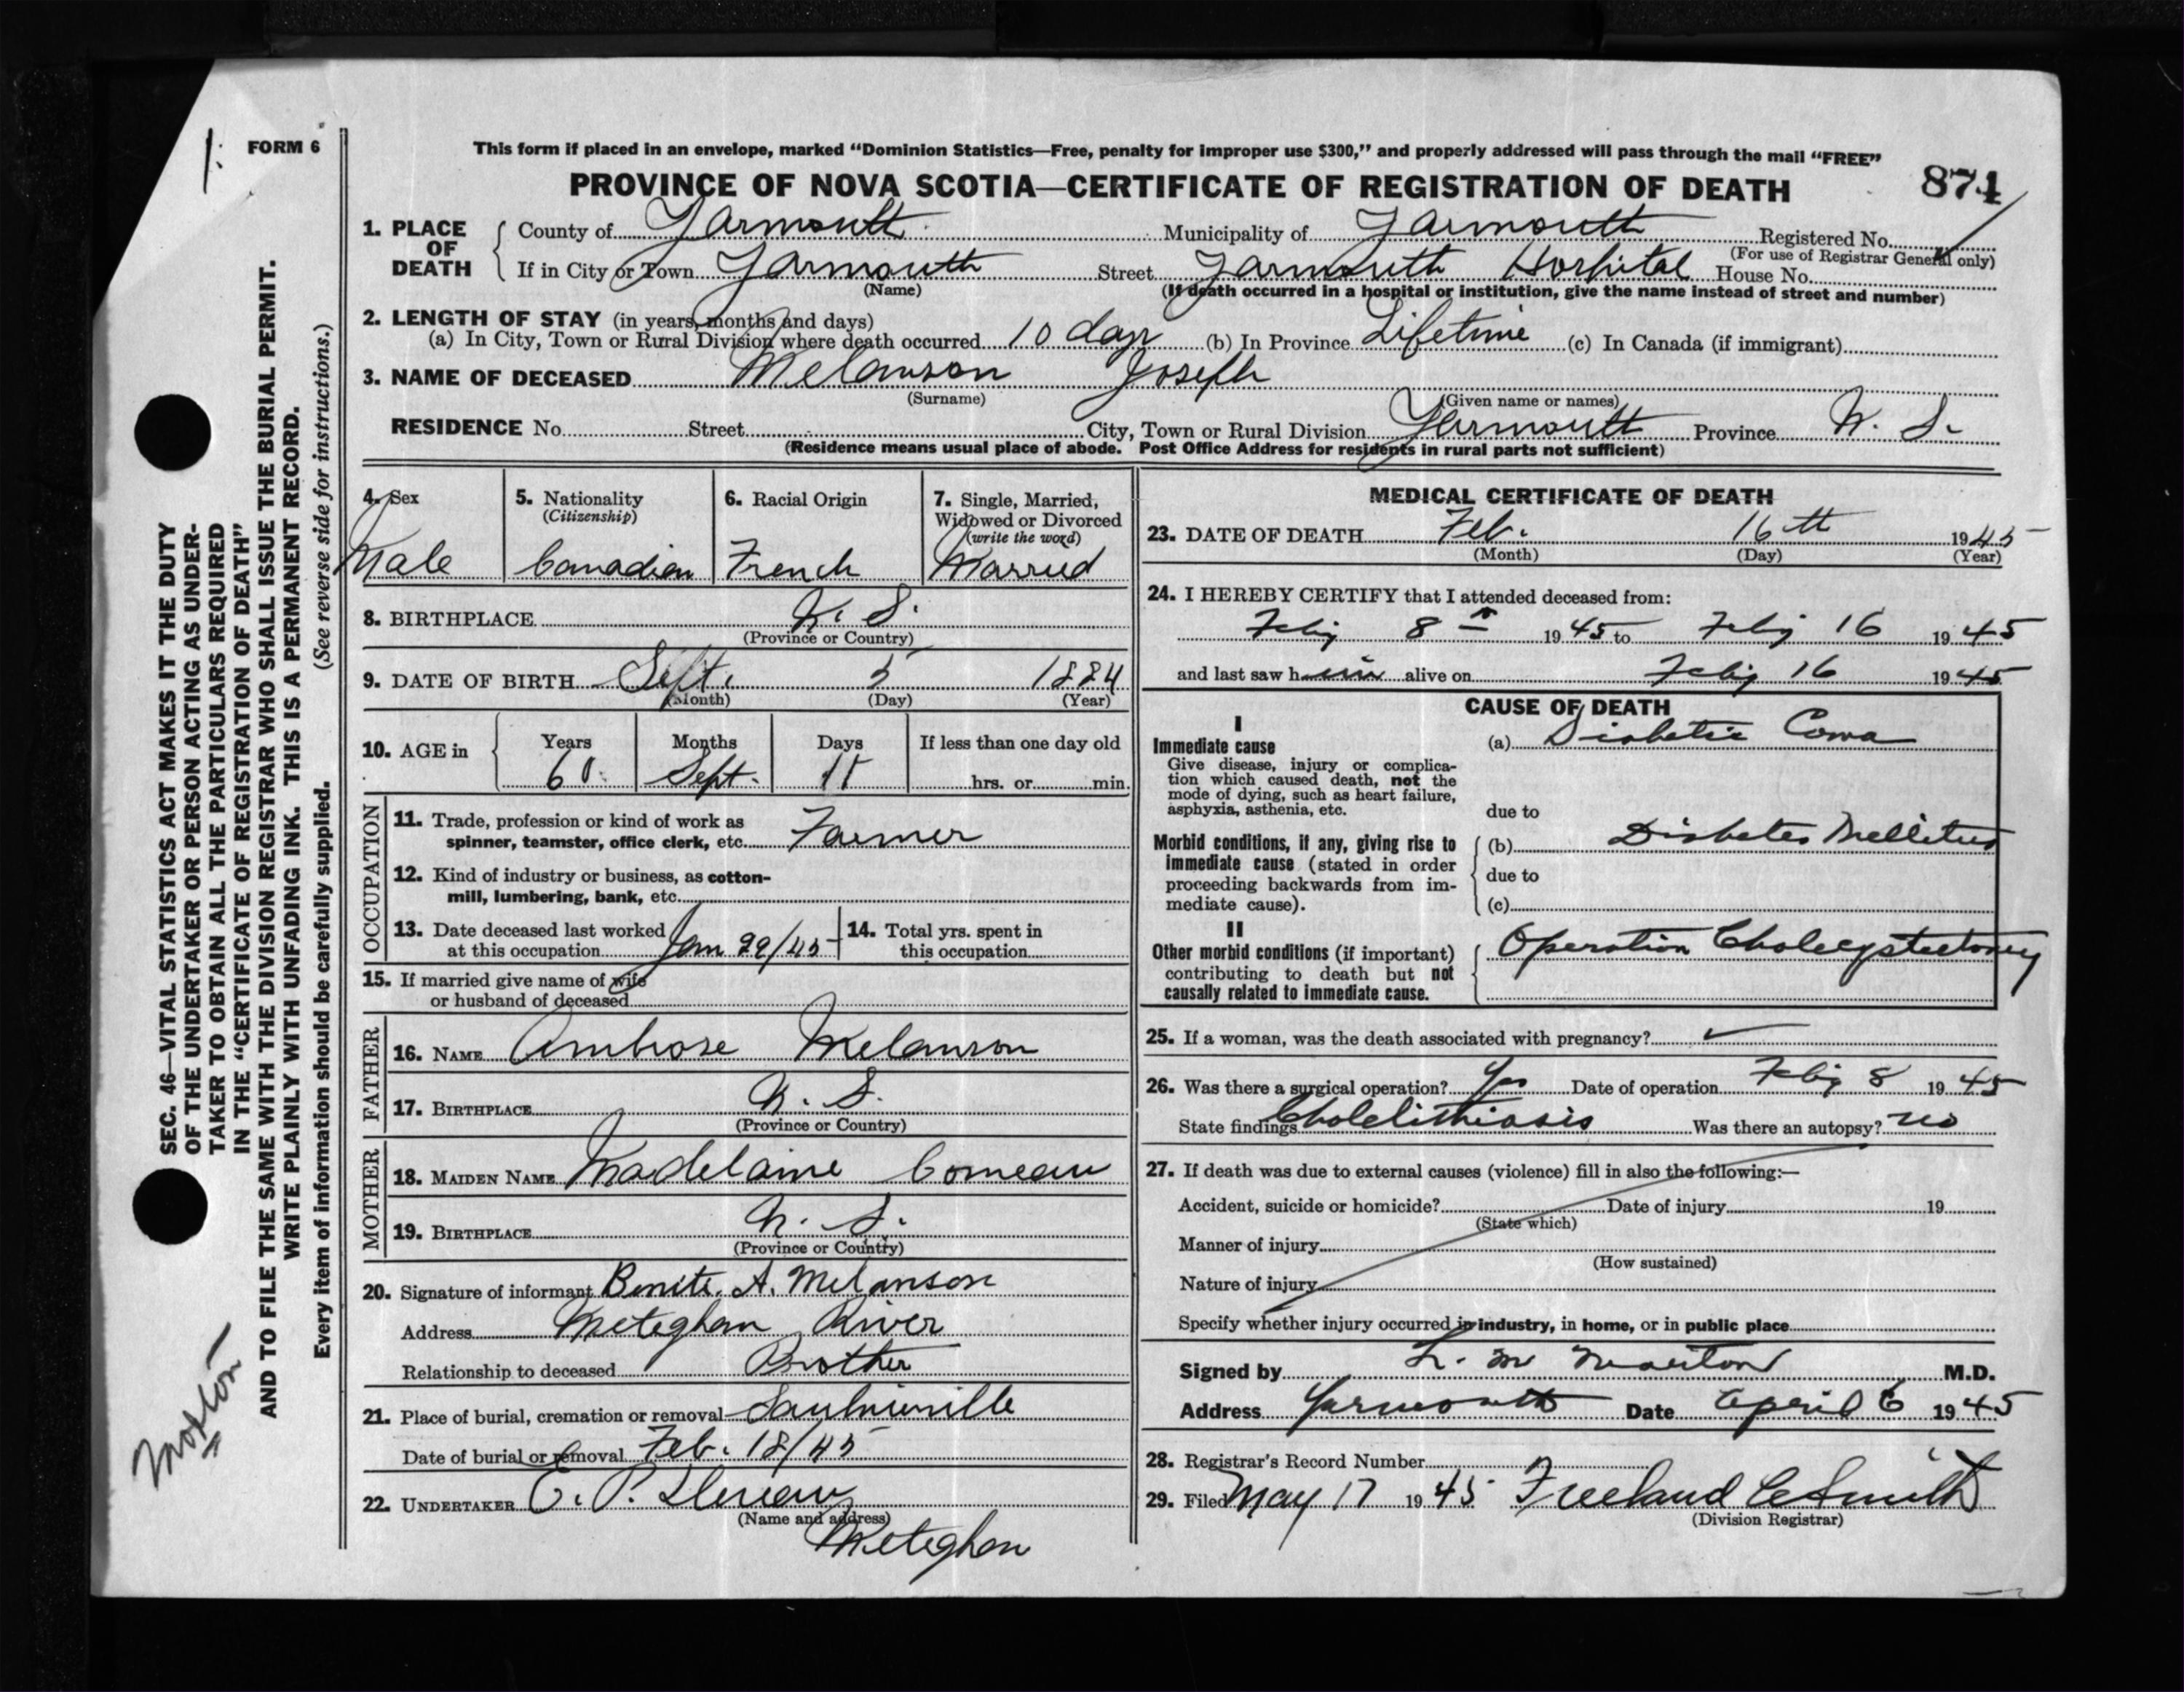 1.
FORM 6
This form if placed in an envelope, marked “Dominion Statistics—Free, penalty for improper use $300,” and properly addressed will pass through the mail “FREE”
PROVINCE OF NOVA SCOTIA—CERTIFICATE OF REGISTRATION OF DEATH
871
1. PLACE OF DEATH
County of Yarmouth Municipality of Yarmouth Registered No.
(For use of Registrar General only)
If in City or Town Yarmouth Street Yarmouth Hospital House No.
(Name) (If death occurred in a hospital or institution, give the name instead of street and number)
2. LENGTH OF STAY (in years, months and days)
(a) In City, Town or Rural Division where death occurred 10 days (b) In Province Lifetime (c) In Canada (if immigrant)
3. NAME OF DECEASED Melanson Joseph
(Surname) (Given name or names)
RESIDENCE No. Street City, Town or Rural Division Yarmouth Province N. S.
(Residence means usual place of abode. Post Office Address for residents in rural parts not sufficient)
4. Sex
Male
5. Nationality
(Citizenship)
Canadian
6. Racial Origin
French
7. Single, Married,
Widowed or Divorced
(write the word)
Married
8. BIRTHPLACE N. S.
(Province or Country)
9. DATE OF BIRTH Sept. 5 1884
(Month) (Day) (Year)
10. AGE in
Years Months Days If less than one day old
60 Sept. 11 hrs. or min.
OCCUPATION
11. Trade, profession or kind of work as
spinner, teamster, office clerk, etc. Farmer
12. Kind of industry or business, as cotton-
mill, lumbering, bank, etc.
13. Date deceased last worked
at this occupation Jan 29/45
14. Total yrs. spent in
this occupation
15. If married give name of wife
or husband of deceased
FATHER
16. NAME Ambrose Melanson
17. BIRTHPLACE N. S.
(Province or Country)
MOTHER
18. MAIDEN NAME Madelaine Comeau
19. BIRTHPLACE N. S.
(Province or Country)
20. Signature of informant Benite. A. Melanson
Address Meteghan River
Relationship to deceased Brother
21. Place of burial, cremation or removal Saulnierville
Date of burial or removal Feb. 18/45
22. UNDERTAKER E. P.
(Name and address)
Meteghan
MEDICAL CERTIFICATE OF DEATH
23. DATE OF DEATH Feb. 16th 1945
(Month) (Day) (Year)
24. I HEREBY CERTIFY that I attended deceased from:
Feby 8th 1945 to Feby 16 1945
and last saw him alive on Feby 16 1945
CAUSE OF DEATH
I
Immediate cause
Give disease, injury or complica-
tion which caused death, not the
mode of dying, such as heart failure,
asphyxia, asthenia, etc.
(a) Diabetic Coma
due to
Morbid conditions, if any, giving rise to
immediate cause (stated in order
proceeding backwards from im-
mediate cause).
(b) Diabetes Mellitus
due to
(c)
II
Other morbid conditions (if important)
contributing to death but not
causally related to immediate cause.
Operation Cholecystectomy
25. If a woman, was the death associated with pregnancy?
26. Was there a surgical operation? Yes Date of operation Feby 8 1945
State findings Cholelithiasis Was there an autopsy? no
27. If death was due to external causes (violence) fill in also the following:—
Accident, suicide or homicide? Date of injury 19
(State which)
Manner of injury
(How sustained)
Nature of injury
Specify whether injury occurred in industry, in home, or in public place
Signed by L. M. M.D.
Address Yarmouth Date April 6 1945
28. Registrar's Record Number
29. Filed May 17 1945 Freeland C Smith
(Division Registrar)
SEC. 46—VITAL STATISTICS ACT MAKES IT THE DUTY
OF THE UNDERTAKER OR PERSON ACTING AS UNDER-
TAKER TO OBTAIN ALL THE PARTICULARS REQUIRED
IN THE “CERTIFICATE OF REGISTRATION OF DEATH”
AND TO FILE THE SAME WITH THE DIVISION REGISTRAR WHO SHALL ISSUE THE BURIAL PERMIT.
WRITE PLAINLY WITH UNFADING INK. THIS IS A PERMANENT RECORD.
Every item of information should be carefully supplied. (See reverse side for instructions.)